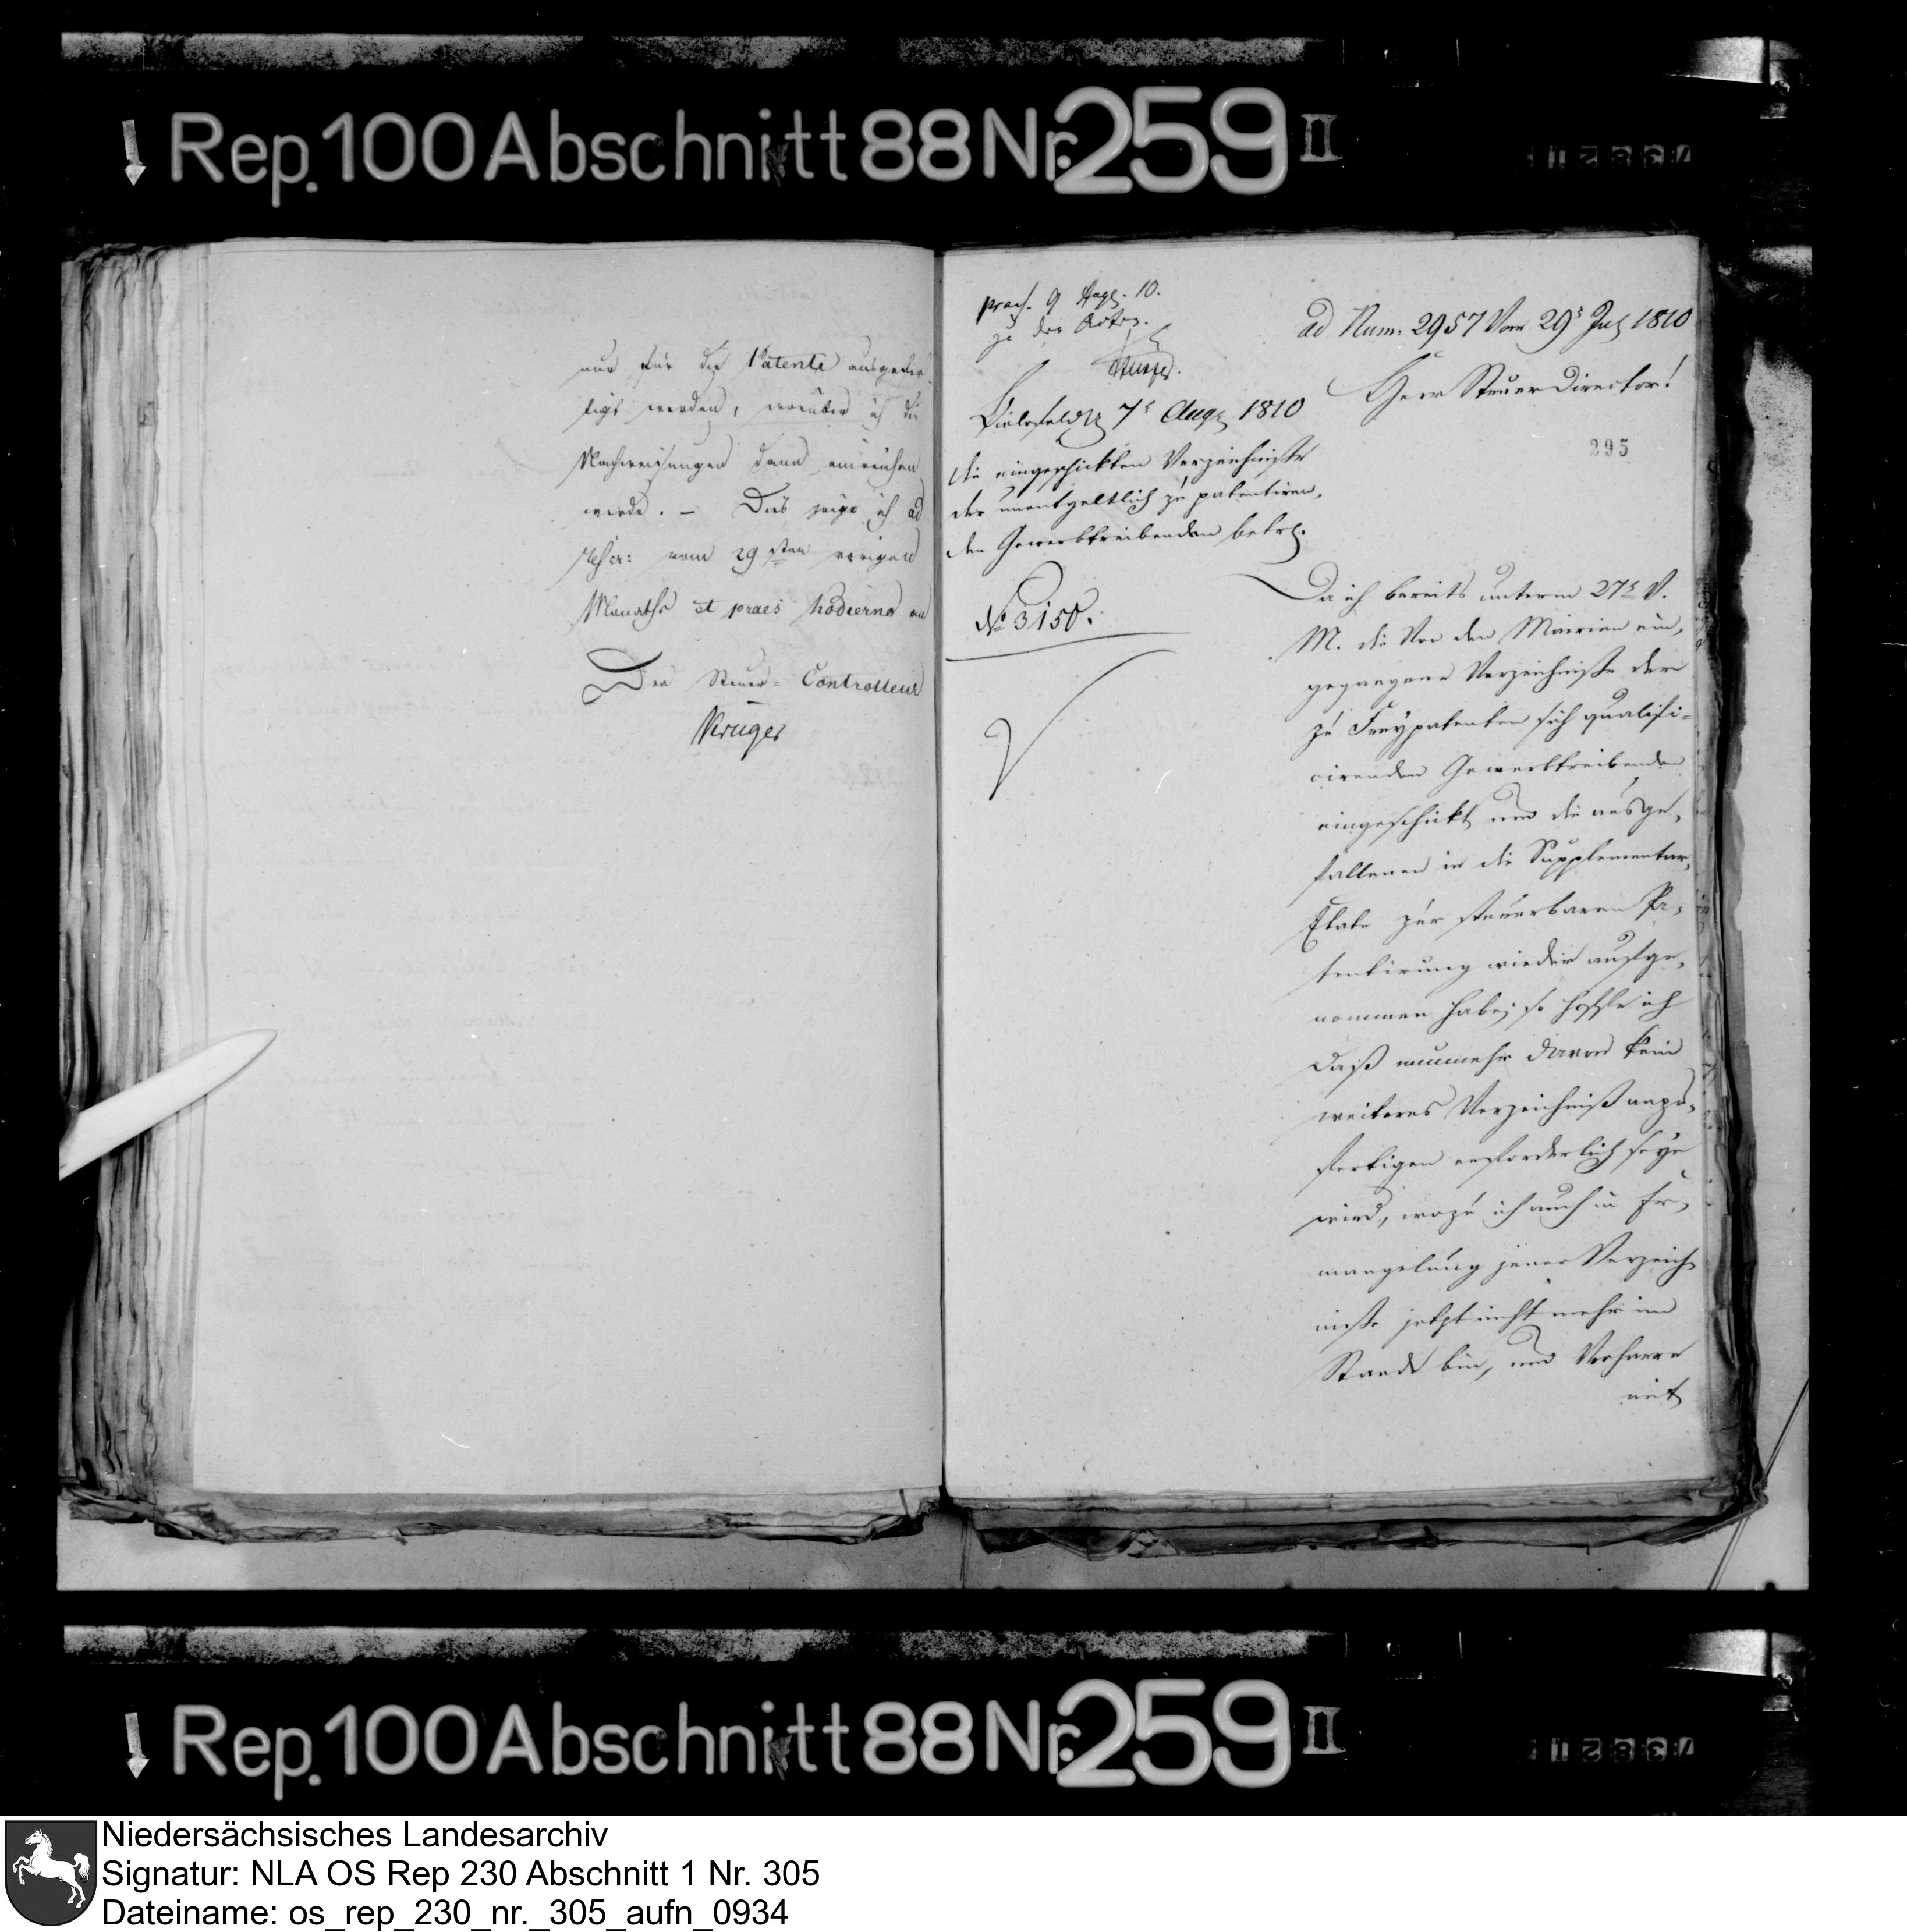 Rep. 100 Abschnitt 88 Nr. 259 II
nur für die Patente ausgefer,
tigt werden, worüber ich die
Nachweisungen dann einreichen
werde. – Dies zeige ich ad
vom 29sten vorigen
Monaths et praes hodierno an
Der Steuer-Controlleur
Krüger
praes. 9 Aug. 10.
zu den Acten.
Bielefeld 7t Aug 1810
die eingeschickten Verzeichniße
der unentgeltlich zu patentiren,
den Gewerbtreibenden betr.
No 3150.
ad Num. 2957 vom 29t Jul 1810
Herr Steuer Director!
295
Da ich bereits unterm 27t v.
M. die von den Mairien ein,
gegangene Verzeichniße der
zu Freypatenten sich qualifi-
cirenden Gewerbtreibenden
eingeschickt und die ausge,
fallenen in die Supplementar,
Etats zur steuerbaren Pa,
tentirung wieder aufge,
nommen habe; so hoffe ich
daß nunmehr davon kein
weiteres Verzeichniß anzu,
fertigen erforderlich seyn
wird, wozu ich auch in Er,
mangelung jener Verzeich,
niße jetzt nicht mehr im
Stande bin, und verharre
mit
Rep. 100 Abschnitt 88 Nr. 259 II
Niedersächsisches Landesarchiv
Signatur: NLA OS Rep 230 Abschnitt 1 Nr. 305
Dateiname: os_rep_230_nr._305_aufn_0934